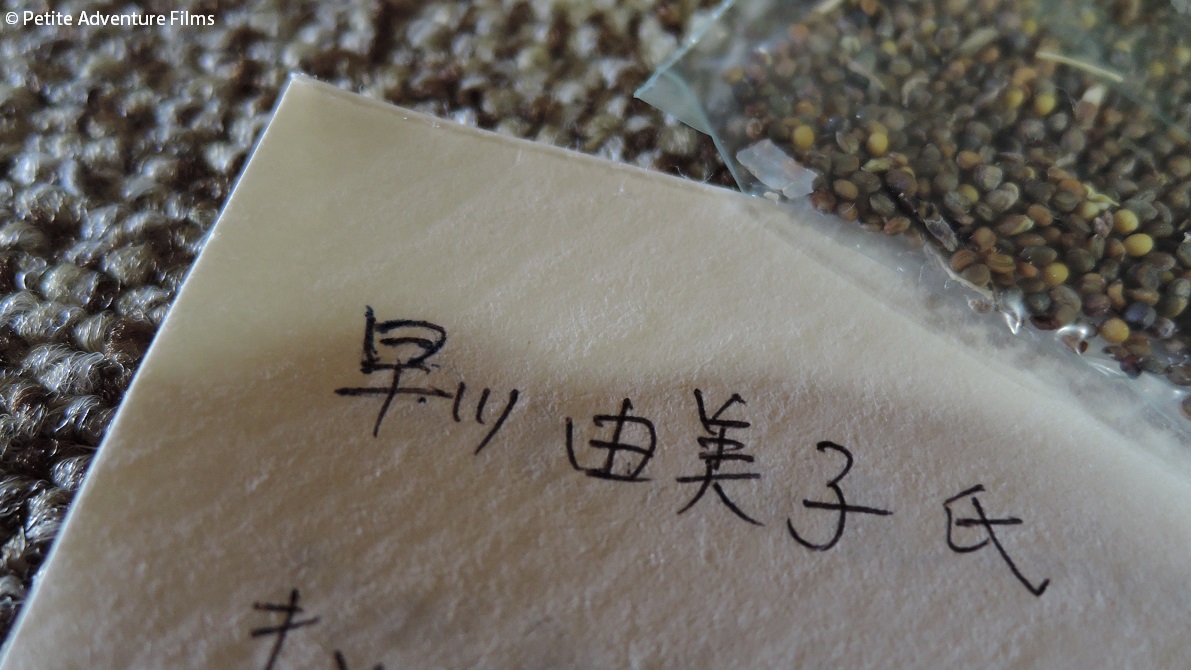 © Petite Adventure Films
早川 由美子 氏